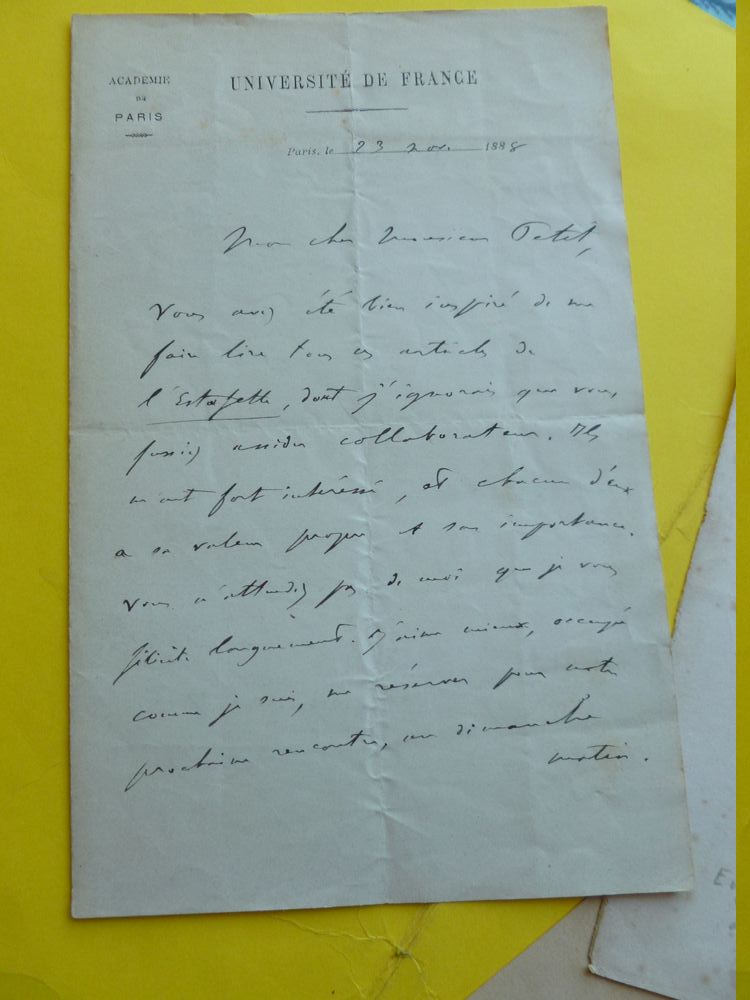 ACADÉMIE
DE
PARIS
UNIVERSITÉ DE FRANCE
Paris, le 23 nov. 1888
Mon cher Monsieur Petit,
Vous avez été bien inspiré de me
faire lire tous ces articles de
l'Estafette, dont j'ignorais que vous
fussiez assidu collaborateur. Ils
m'ont fort intéressé, et chacun d'eux
a sa valeur propre et son importance.
Vous n'attendez pas de moi que je vous
félicite longuement. J'aime mieux, occupé
comme je suis, me réserver pour notre
prochaine rencontre, un dimanche
matin.